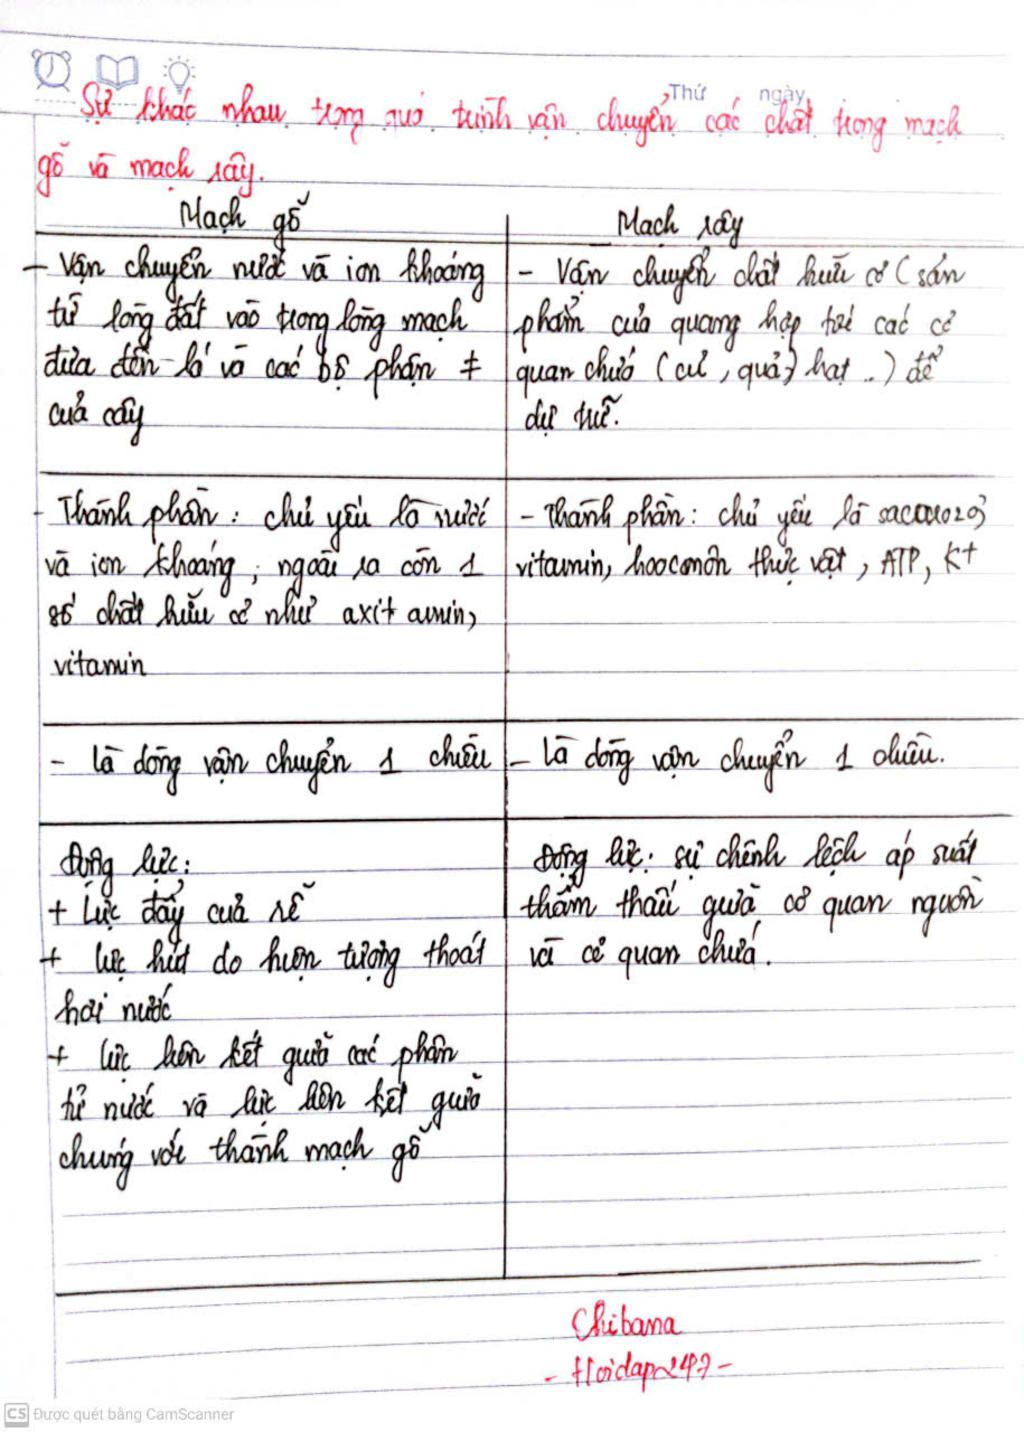 Thứ ngày
Sự khác nhau trong quá trình vận chuyển các chất trong mạch
gỗ và mạch rây.
Mạch gỗ
- Vận chuyển nước và ion khoáng
từ lòng đất vào trong lòng mạch
đưa đến lá và các bộ phận ≠
của cây
- Thành phần: chủ yếu là nước
và ion khoáng, ngoài ra còn 1
số chất hữu cơ như axit amin,
vitamin
- là dòng vận chuyển 1 chiều
Động lực:
+ Lực đẩy của rễ
+ lực hút do hiện tượng thoát
hơi nước
+ lực liên kết giữa các phân
tử nước và lực liên kết giữa
chúng với thành mạch gỗ
Mạch rây
- Vận chuyển chất hữu cơ (sản
phẩm của quang hợp tới các cơ
quan chứa (củ, quả, hạt ..) để
dự trữ.
- Thành phần: chủ yếu là saccarozơ
vitamin, hoocmôn thực vật, ATP, K+
- Là dòng vận chuyển 1 chiều.
Động lực: sự chênh lệch áp suất
thẩm thấu giữa cơ quan nguồn
và cơ quan chứa.
Chibana
- Hoidap247 -
CS Được quét bằng CamScanner